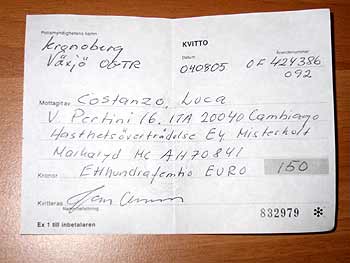 Polismyndighetens namn
Kronoberg
Växjö ObTR
KVITTO
Datum
040805
Ärendenummer
OF 424386
092
Mottagit av
Costanzo, Luca
V. Pertini 16, ITA 20040 Cambiago
Hasthetsöverträdelse E4 Misterhult
Markaryd MC AH70841
Kronor
Etthundrafemtio EURO
150
Kvitteras
Namnteckning
832979 ✻
Ex 1 till inbetalaren